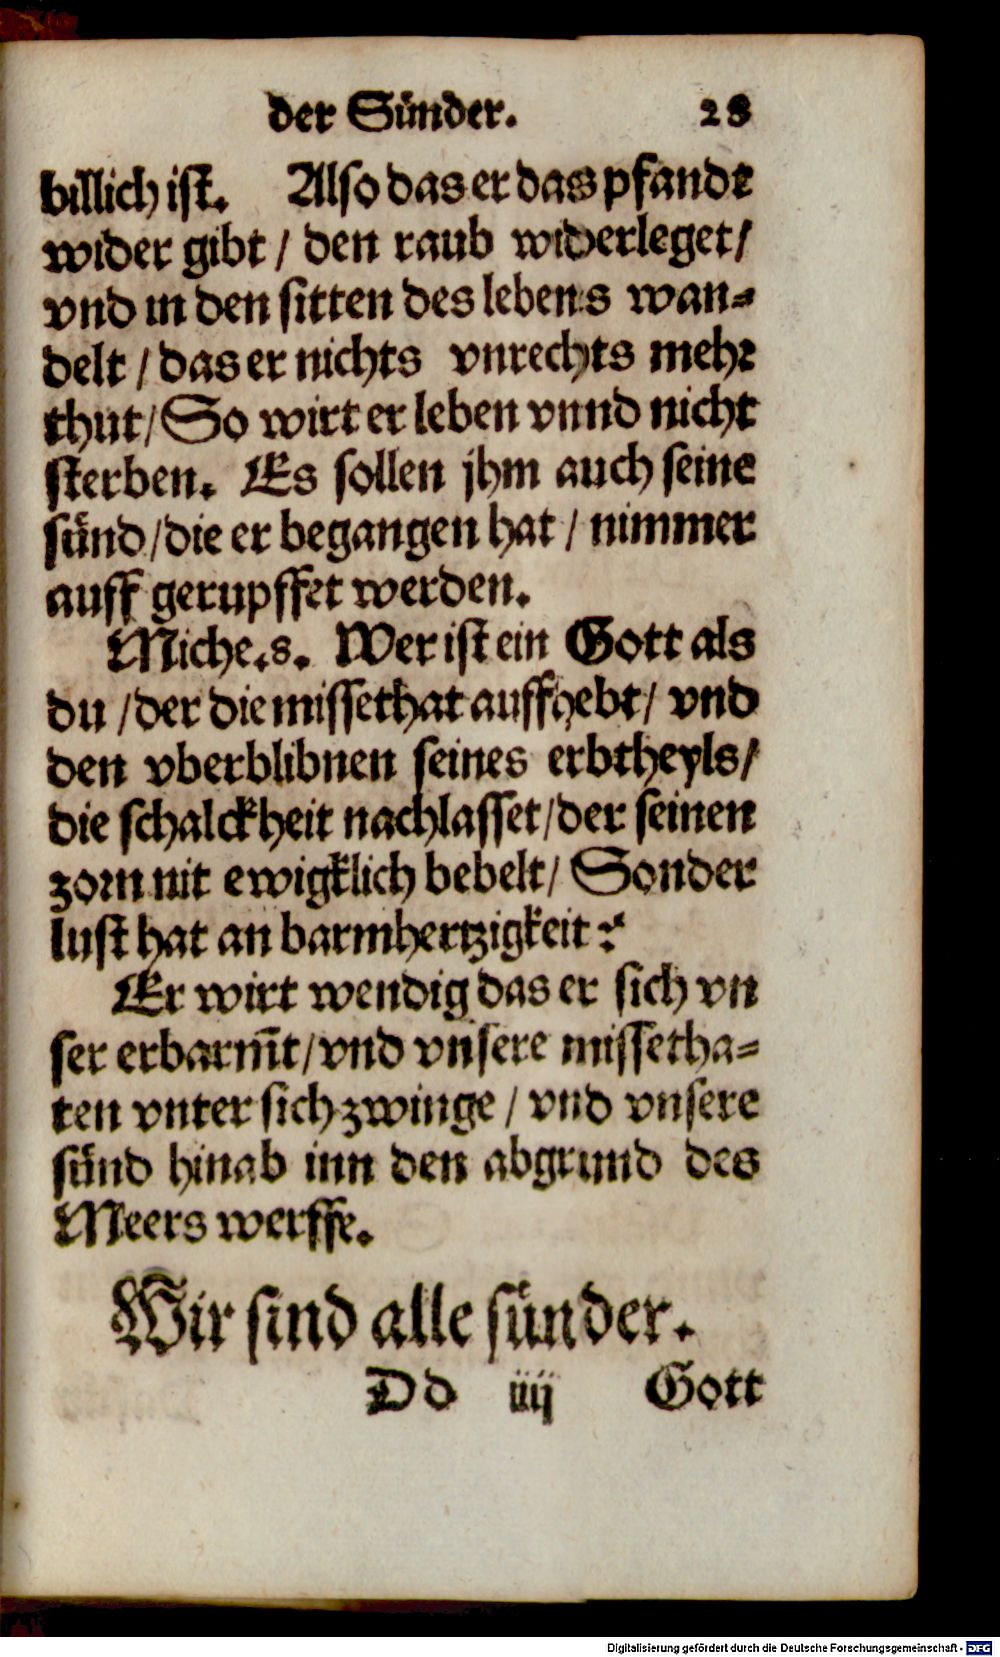 der Sünder. 28
billich ist. Also das er das pfandt
wider gibt / den raub widerleget /
vnd in den sitten des lebens wan=
delt / das er nichts vnrechts mehr
thut / So wirt er leben vnnd nicht
sterben. Es sollen jhm auch seine
sünd / die er begangen hat / nimmer
auff gerupffet werden.
Miche. s. Wer ist ein Gott als
du / der die missethat auffhebt / vnd
den vberblibnen seines erbtheyls /
die schalckheit nachlasset / der seinen
zorn nit ewigklich bebelt / Sonder
lust hat an barmhertzigkeit?
Er wirt wendig das er sich vn
ser erbarm̄t / vnd vnsere missetha=
ten vnter sich zwinge / vnd vnsere
sünd hinab inn den abgrund des
Meers werffe.
Wir sind alle sünder.
Dd iiij Gott
Digitalisierung gefördert durch die Deutsche Forschungsgemeinschaft - DFG